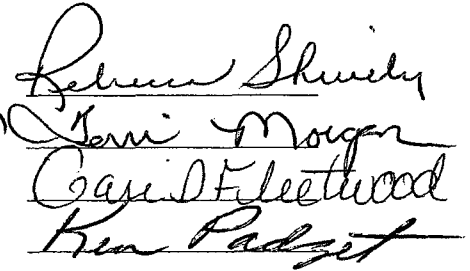 Rebecca Shively
Terri Morgan
Cari D Fleetwood
Ken Padget